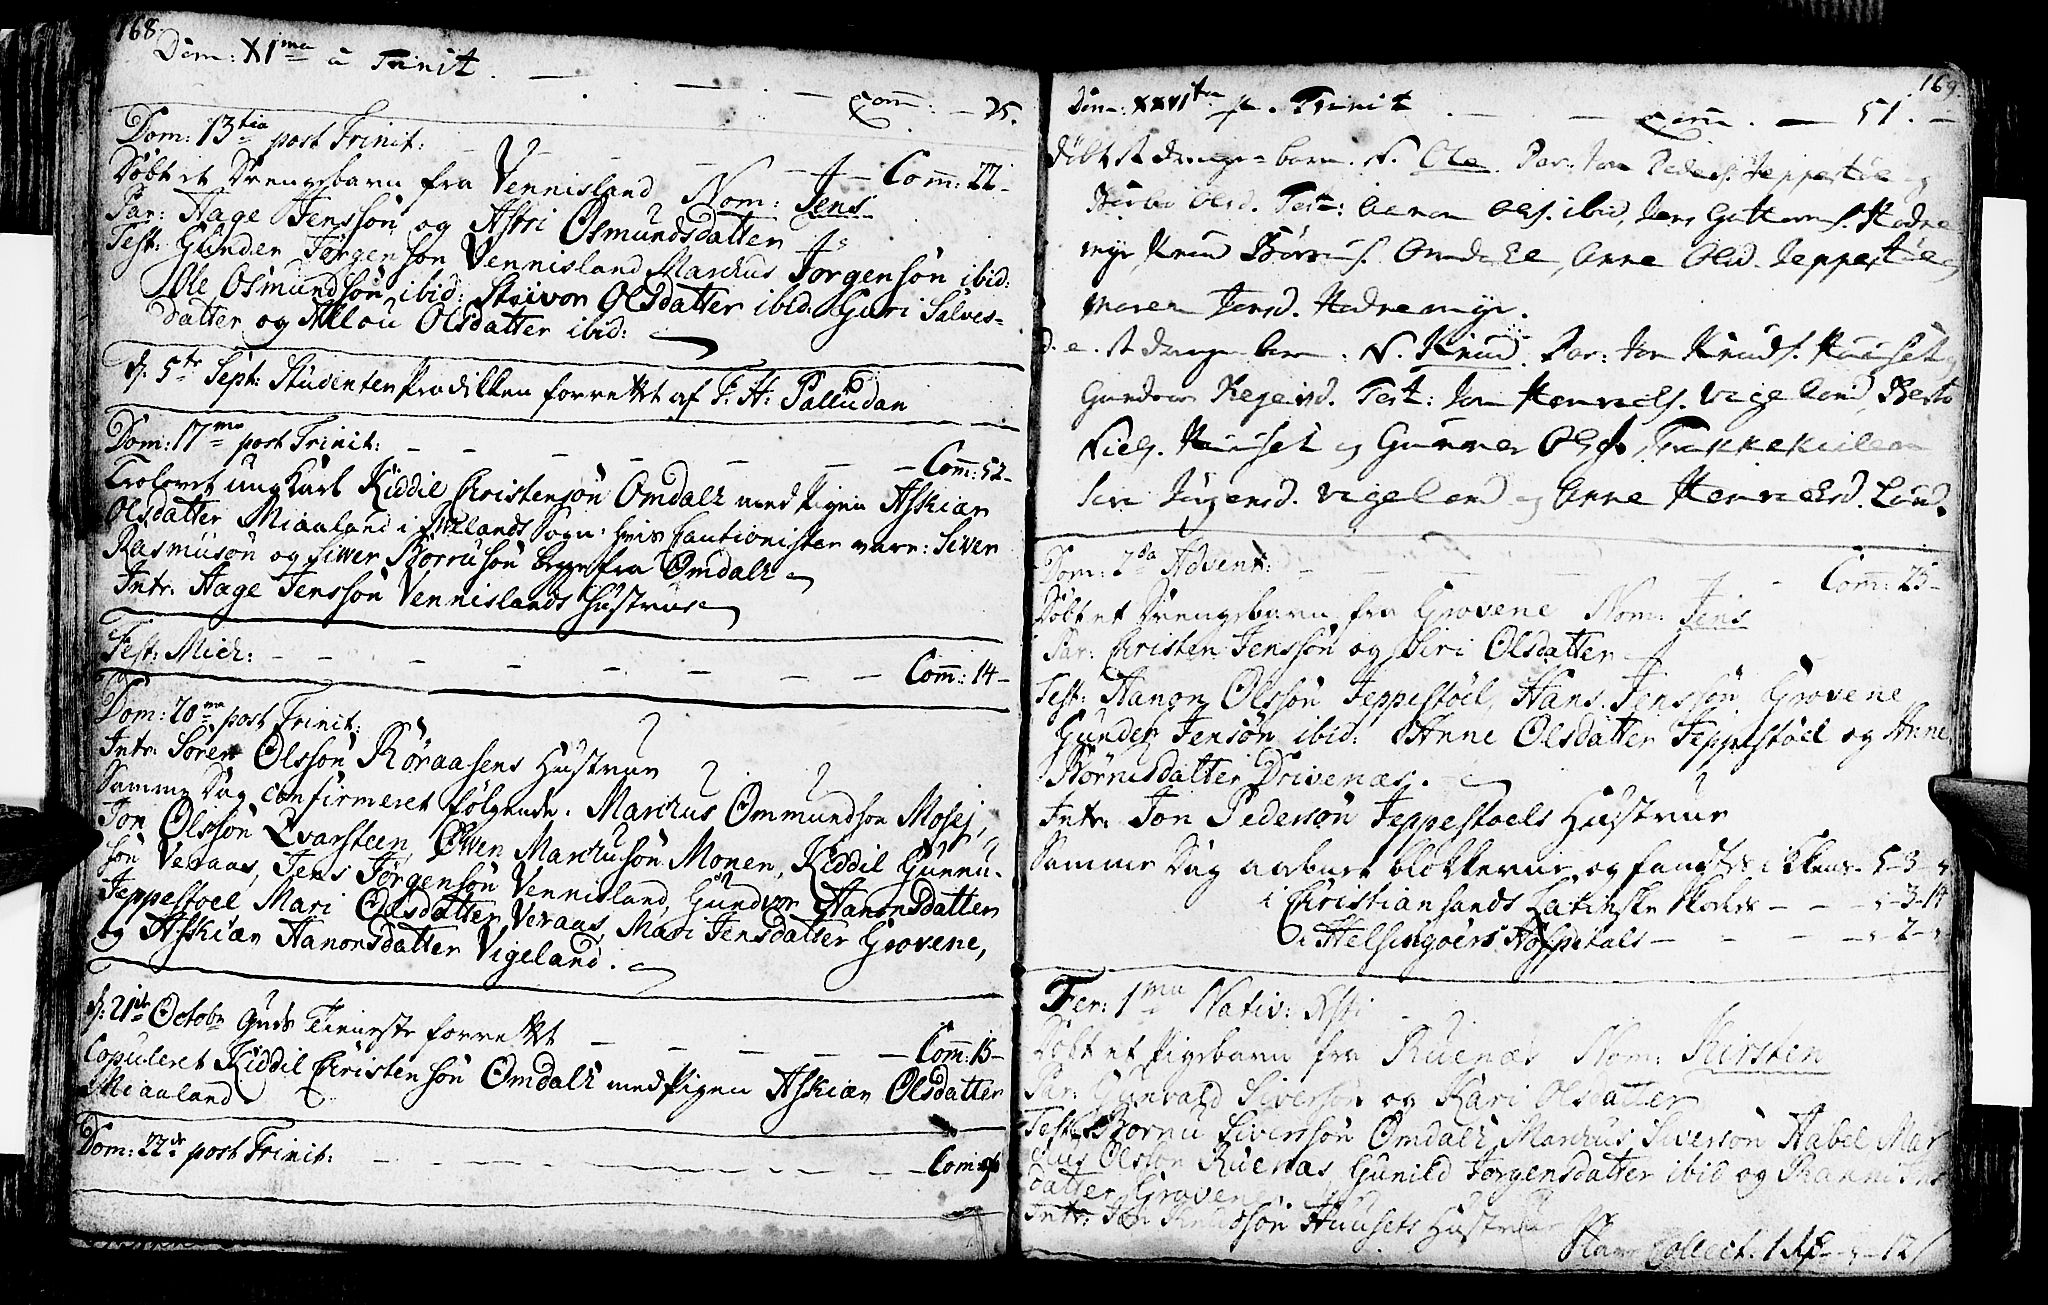 168.
Dom: XI ma a Trinit. Com: 25.
Dom: 13 tia post Trinit: Com: 22
Döbt et Drengebarn fra Vennisland Nom: Jens
Par: Aage Jenssön og Astri Osmundsdatter
Test: Gunder Jörgensön Vennisland Marcus Jorgensön ibid:
Ole Osmundsön ibid: Steivor Olsdatter ibid: Guri Salves-
datter og Allou Olsdatter ibid:
d. 5te Sept: Studenter Prædiken forrettet af F. H: Palludan
Dom: 17 ma post Trinit: Com: 52
Trolovet ung Karl Kiddil Christensön Omdall med Pigen Askiær
Olsdatter Miaaland i Sogn: hvis Cautionister vare: Siver
Rasmusön og Siver Börrusön begge fra Omdall
Intr. Aage Jenssön Vennislands Hustrue
Fest: Mich: Com: 14
Dom: 20 ma post Trinit:
Intr: Sören Olssön Röraasens Hustrue
Samme Dag confirmeret fölgende. Marcus Ommundsön Mosej,
Jon Olssön Qvarsteen, Öwen Marcusön Monen, Kiddil Gunnu-
sön Veraas, Jens Jörgensön Vennisland, Gundvor Hanonsdatter
Jeppestoel Mari Olsdatter Veraas, Mari Jensdatter Grovene,
og Askiær Hanonsdatter Vigeland.
d. 21de Octobr Guds Tieneste forrettet Com: 15
Copuleret Kiddil Christensön Omdall med Pigen Askiær Olsdatter
Miaaland
Dom: 22de post Trinit: Com:
169
Dom: XXVI ta p. Trinit Com. 51.
Döbt et drenge-barn. N. Ole. Par: Jon Peders. Jeppestöe og
Olsd. Test: Hanon Ols. ibid, Jens Guttorms. Hodne
myr, Knud Börres. Omdal, Anne Olsd. Jeppestöe og
Maren Jensd. Hodnemyr.
d. e. et drenge barn: N. Knud. Par: Jon Knuds. Huuset og
Gundvor Test: Jon Henrichs. Vigeland,
Niels. Huuset og Gunner Ols. Trækkekilen
Siri Jörgensd. Vigeland og Anne Henrichsd. Lund.
Dom: 2da Advent: Com: 25
Döbt et Drengebarn fra Grovene Nom: Jens
Par: Christen Jenssön og Siri Olsdatter
Test: Hanon Olssön Jeppestöel, Hans Jenssön Grovene
Gunder Jensön ibid: Anne Olsdatter Jeppestöel og Anne
Börnisdatter Drivenæs.
Intr: Jon Pedersön Jeppestoels Hustrue
Samme Dag aabnet blokkerne og fandtes i Kirkens 5-3-
i Christiansands Latinske Skoeles 3-14
i Helsingöers Hospitals 2
Fer: 1 ma Nativ: Xsti
Döbt et Pigebarn fra Ruenæs Nom: Kirsten
Par: Gunvald Siversön og Kari Olsdatter
Test: Börnu Siversön Omdall Marcus Siversön Aabel Mar
cus Olssön Ruenæs, Gunild Jörgensdatter ibid og
datter Grovene
Intr: Jon Knudsön Huusets Hustrue
Collect. 12